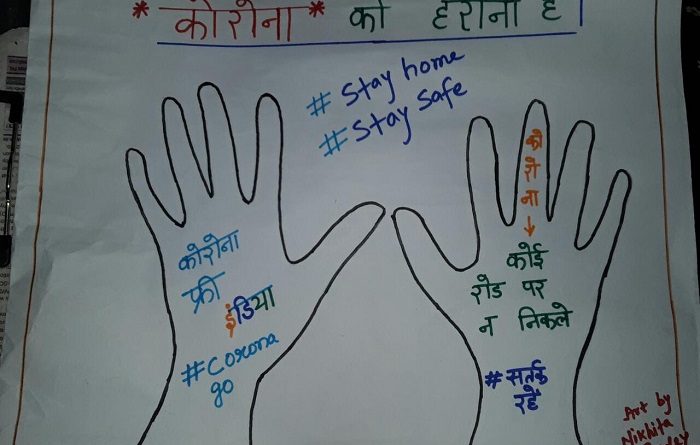 * कोरोना * को हराना है
# Stay home
# Stay safe
कोरोना
फ्री
इंडिया
# Corona
go
को
रो
ना
कोई
रोड पर
न निकले
# सर्तक
रहें
Art by
Nikhita